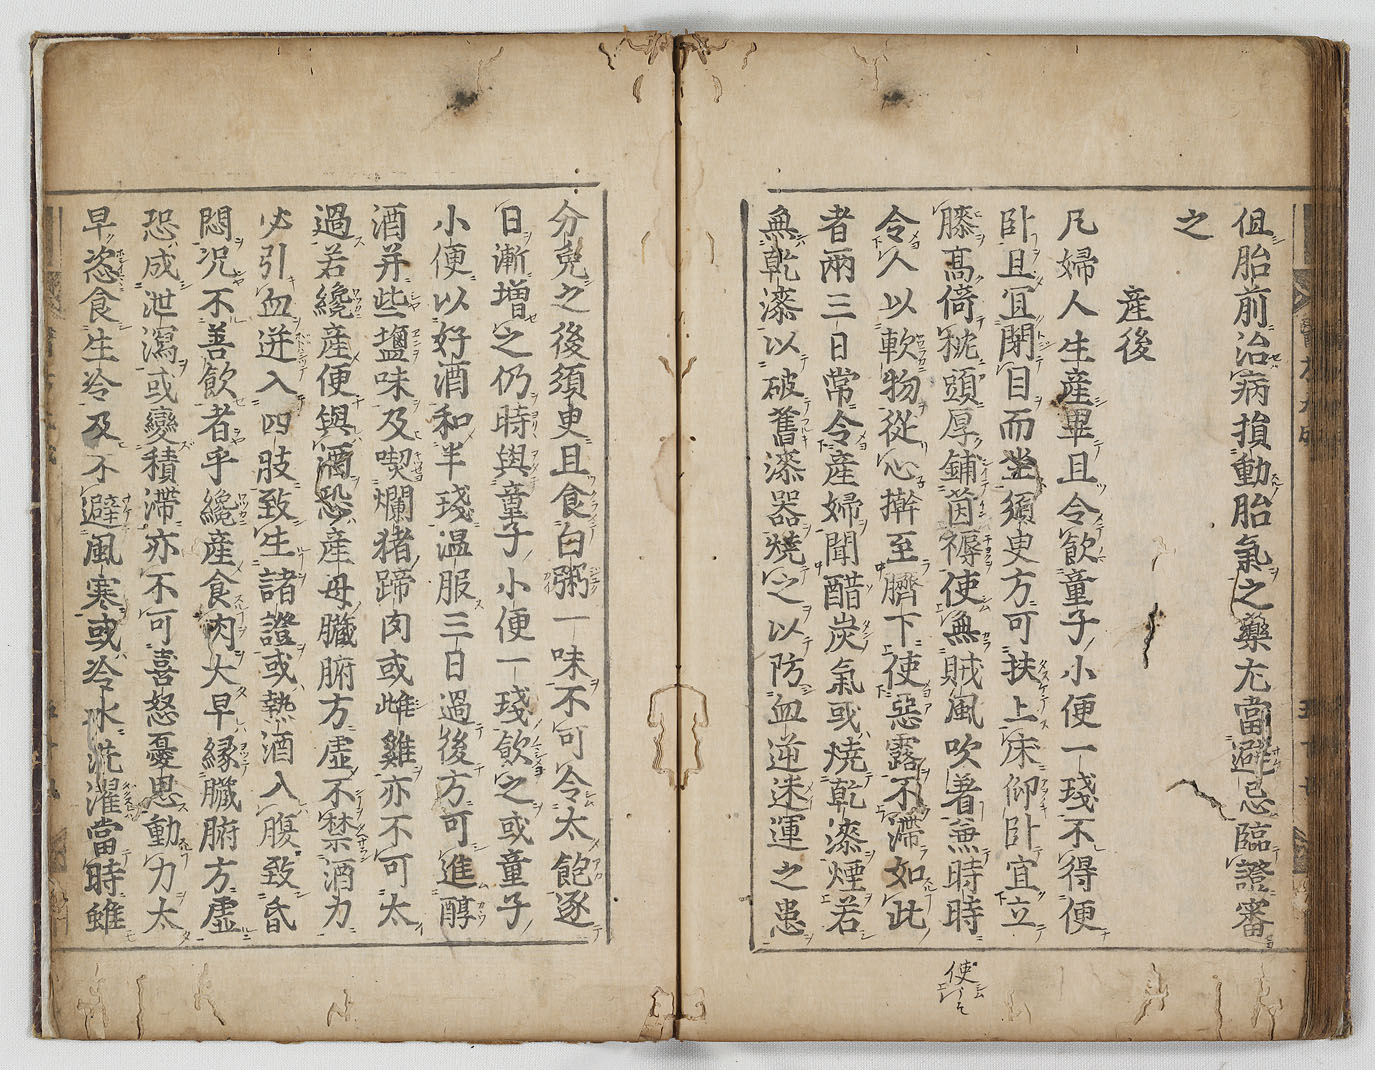 但胎前治病損動胎氣之藥尤當避忌臨證審
之
産後
凡婦人生産畢且令飲童子小便一琖不得便
卧且宜閉目而坐須臾方可扶上床仰卧宜立
膝高倚枕頭厚鋪茵褥使無賊風吹着兼時時
令人以軟物從心擀至臍下使惡露不滯如此
者兩三日常令産婦聞醋炭氣或燒乾漆煙若
無乾漆以破舊漆器燒之以防血逆迷運之患
使
分免之後須臾且食白粥一味不可令太飽逐
日漸増之仍時與童子小便一琖飲之或童子
小便以好酒和半琖温服三日過後方可進醇
酒并些鹽味及喫爛猪蹄肉或雌雞亦不可太
過若纔産便與酒恐産母臓腑方虚不禁酒力
必引血迸入四肢致生諸證或熱酒入腹致昏
悶况不善飲者乎纔産食肉大早縁臓腑方虚
恐成泄瀉或變積滯亦不可喜怒憂思動力太
早恣食生冷及不避風寒或冷水洗濯當時雖